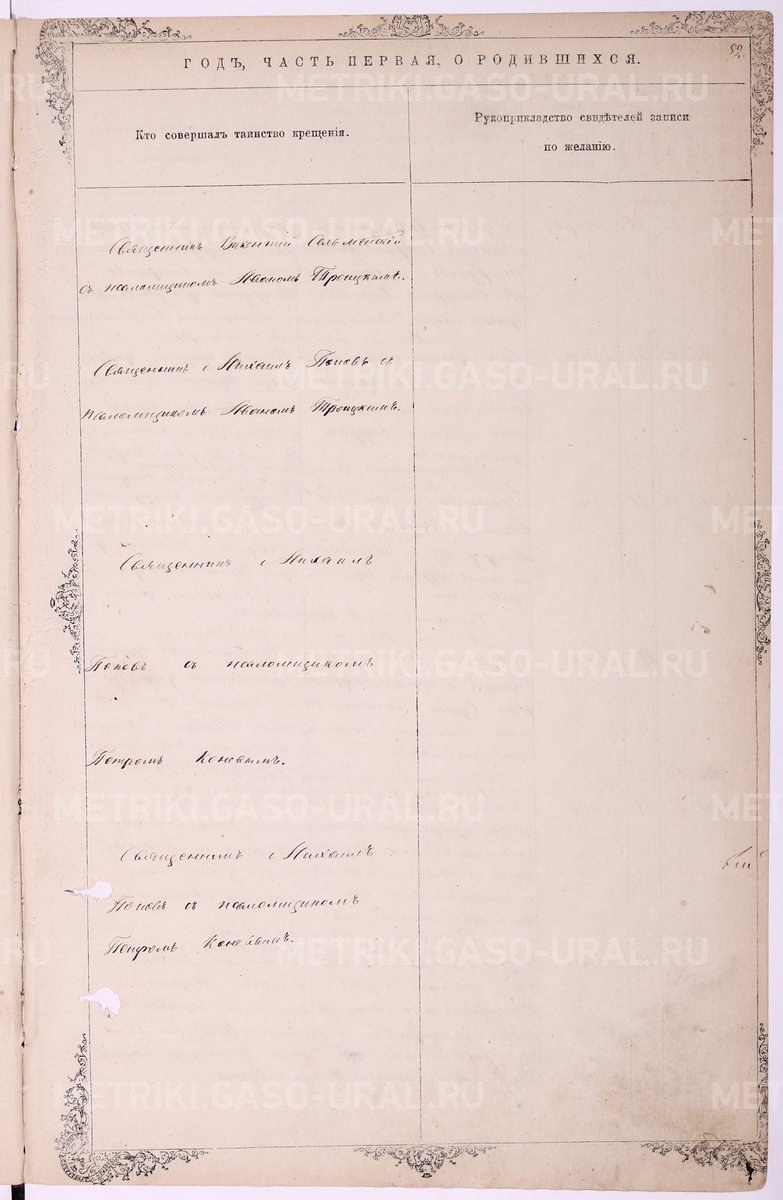 52
ГОДЪ, ЧАСТЬ ПЕРВАЯ, О РОДИВШИХСЯ.
Кто совершалъ таинство крещенія.
Рукоприкладство свидѣтелей записи
по желанію.
Священникъ Викентій
съ псаломщикомъ Иваномъ Троицкимъ.
Священникъ Михаилъ Поповъ съ
псаломщикомъ Иваномъ Троицкимъ.
Священникъ Михаилъ
Поповъ съ псаломщикомъ
Петромъ Коневымъ.
Священникъ Михаилъ
Поповъ съ псаломщикомъ
Петромъ Коневымъ.
METRIKI.GASO-URAL.RU